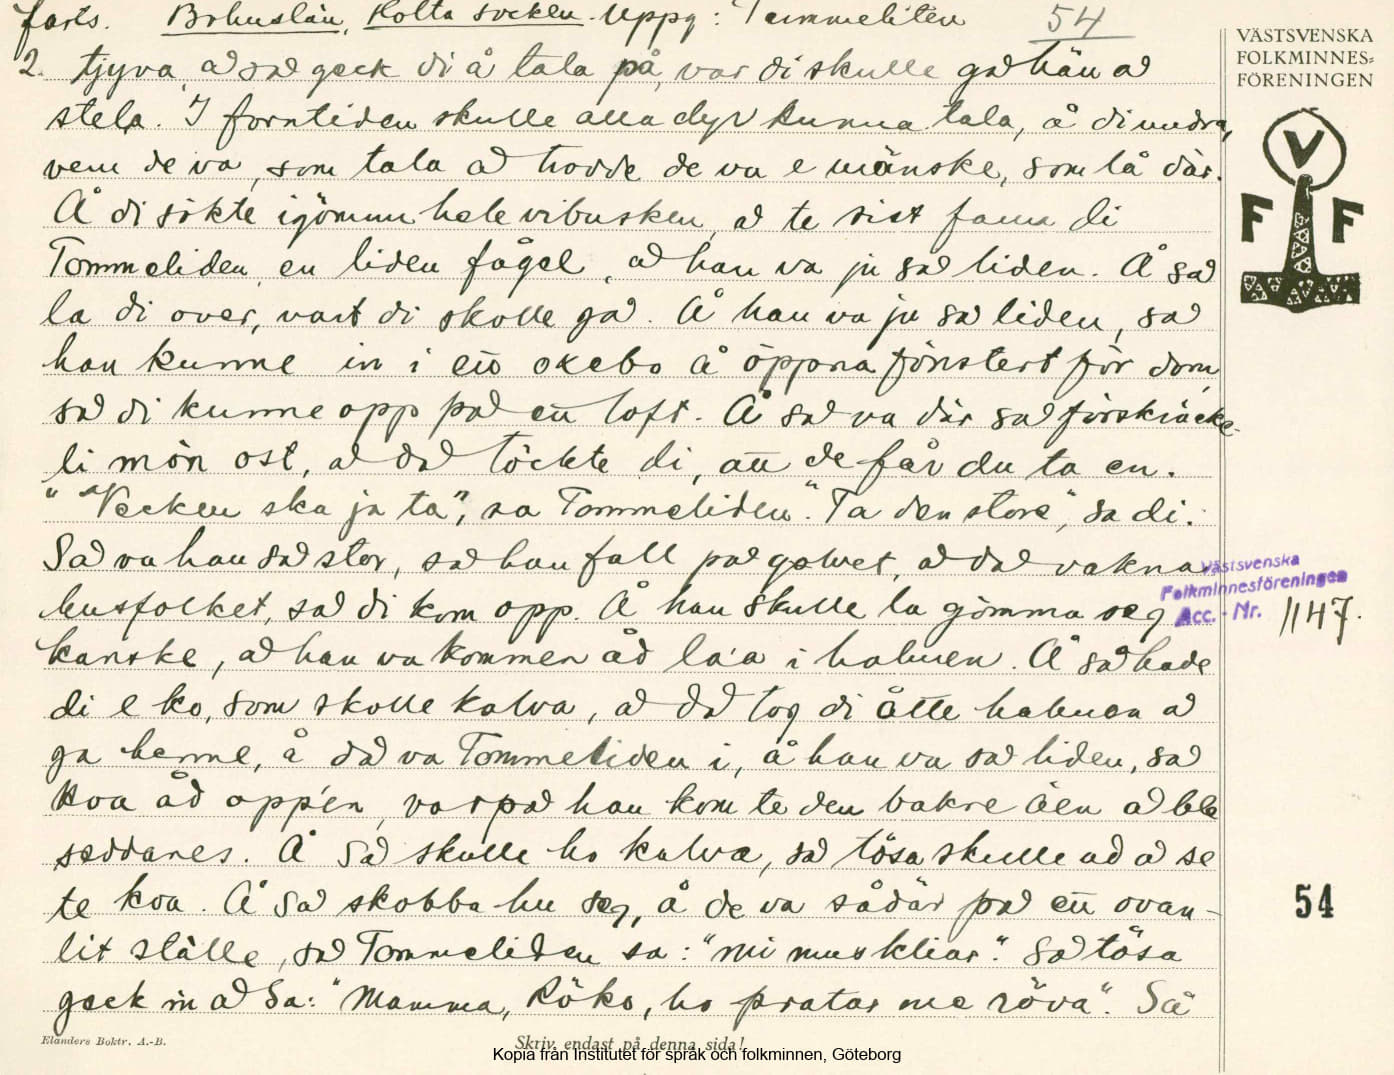 forts. Bohuslän, Rolta socken. Uppg: Tummeliten 54
VÄSTSVENSKA
FOLKMINNES-
FÖRENINGEN
V
F F
2. tjyva, ad sad geck di å tala på, var di skulle gad hän ad
stela. I forntiden skulle alla dyr kunna tala, å di undra,
vem de va, som tala ad trodde de va e mänske, som lå där.
Å di sökte igömmu hele vibusken, ad te sist fann di
Tommeliden, en liden fågel, ad han va ju sad liden. Å sad
la di over, vart di skolle gad. Å han va ju sad liden, sad
han kunne in i ett okebo å öppna fönstert för dom,
sad di kunne opp pad ett loft. Å sad va där sad förskräcke-
li môn ost, ad dad töckte di, att de får du ta en.
"Vecken ska ja ta", sa Tommeliden. "Ta den store", sa di.
Sad va han sad stor, sad han fall pad golvet, ad dad vakna
husfolket, sad di kom opp. Å han skulle la gömma seg
kanske, ad han va kommen åd la'a i halmen. Å sad hade
di e ko, som skolle kalva, ad dad tog di åtte halmen ad
ga henne, å dad va Tommeliden i, å han va sad liden, sad
koa åd opp'en, varpad han kom te den bakre äen ad ble
seddanes. Å sad skulle ho kalva, sad tösa skulle ud ad se
te koa. Å sad skobba hu seg, å de va sådär pad ett ovan-
lit ställe, sad Tommeliden sa: "Mi mus kliar". Sad tösa
geck in ad sa: "Mamma, Röko, ho pratar me röva". Så
Västsvenska
Folkminnesföreningen
Acc. - Nr. 1147.
54
Elanders Boktr. A.-B.
Skriv endast på denna sida!
Kopia från Institutet för språk och folkminnen, Göteborg